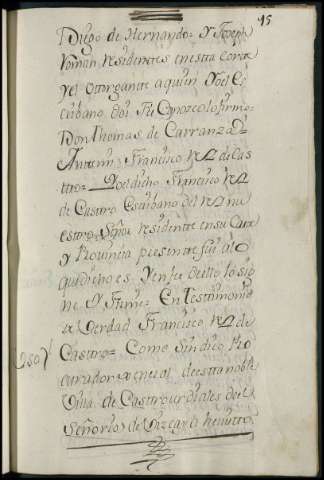 15
Diego de Hernando= Y Joseph
Roman residentes en esta corte
y el otorgante a quien Yo el es
cribano doi fee Conozco lo firmo=
Don Thomas de Carranza=
Antemi= Francisco de Cas
tro= Yo el dicho Francisco
de Castro Escribano del Rey nu
estro Señor residente en su Corte
y Provincia presente fui a lo
que dicho es Y en fee de ello lo sig
ne Y firme= En testimonio
de Verdad Francisco de
Castro= Como Sindico Pro
curador general de esta noble
Villa de Castrourdiales de el
Señorio de Vizcaya